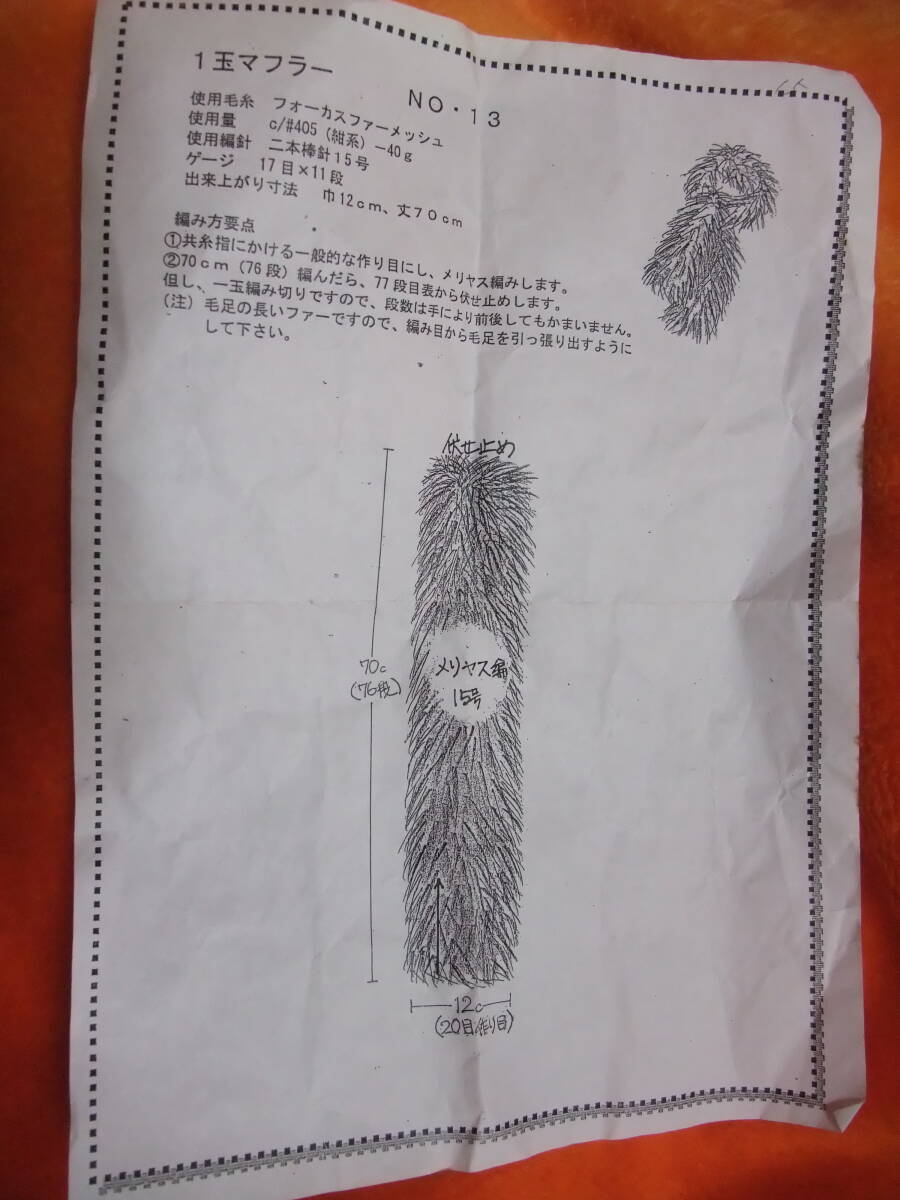 1玉マフラー
NO・13
使用毛糸 フォーカスファーメッシュ
使用量 c/#405(紺系)−40g
使用編針 二本棒針15号
ゲージ 17目×11段
出来上がり寸法 巾12cm、丈70cm
編み方要点
①共糸指にかける一般的な作り目にし、メリヤス編みします。
②70cm(76段)編んだら、77段目表から伏せ止めします。
但し、一玉編み切りですので、段数は手により前後してもかまいません。
(注)毛足の長いファーですので、編み目から毛足を引っ張り出すように
して下さい。
伏せ止め
70c
(76段)
メリヤス編
15号
12c
(20目作り目)